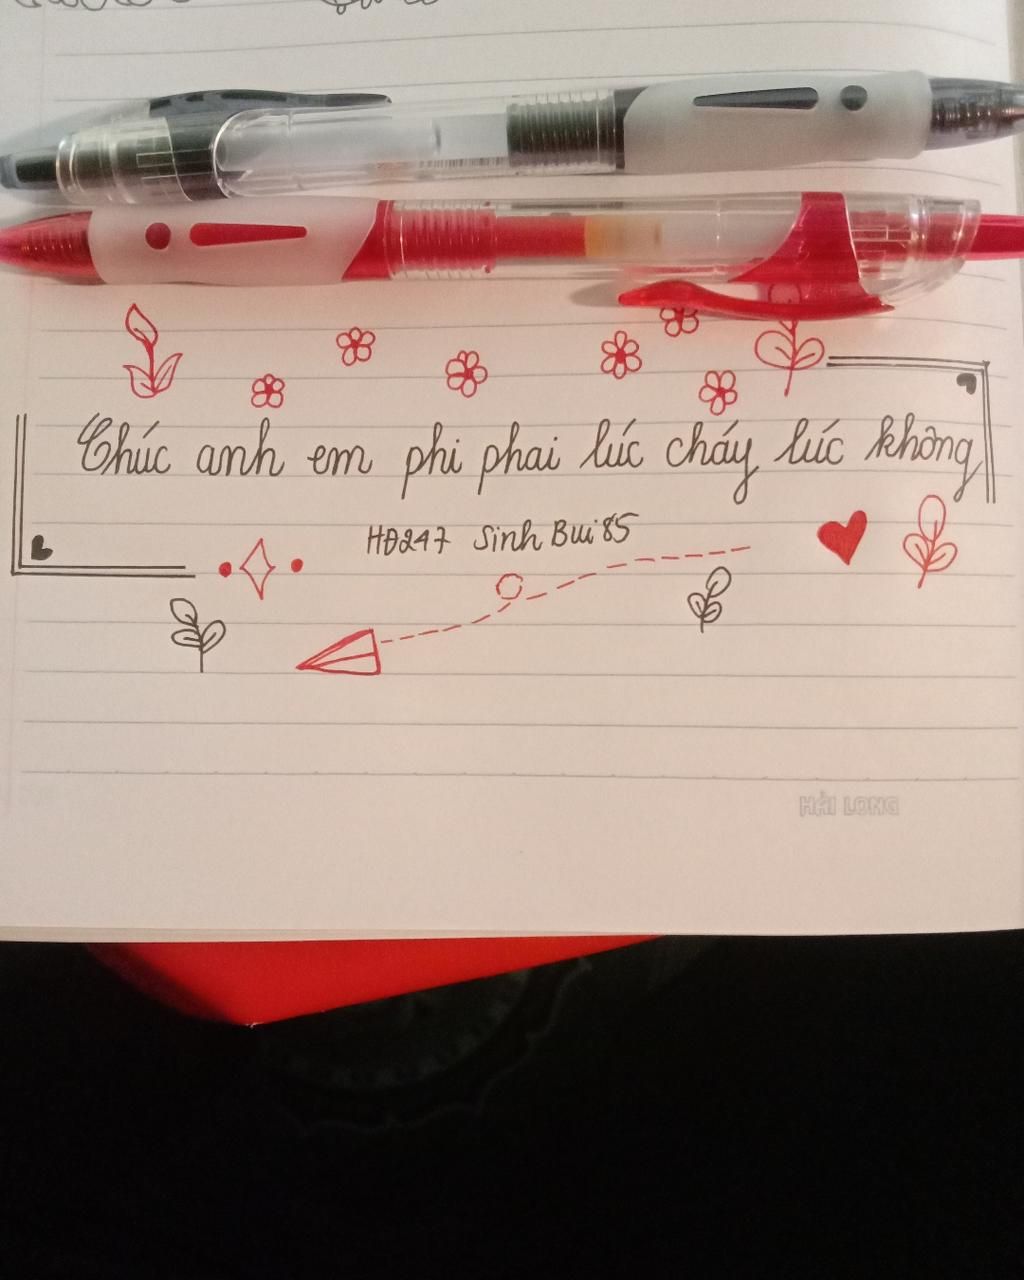 Chúc anh em phi phai lúc cháy lúc không
HĐ247 Sinh Bui 85
HẢI LONG